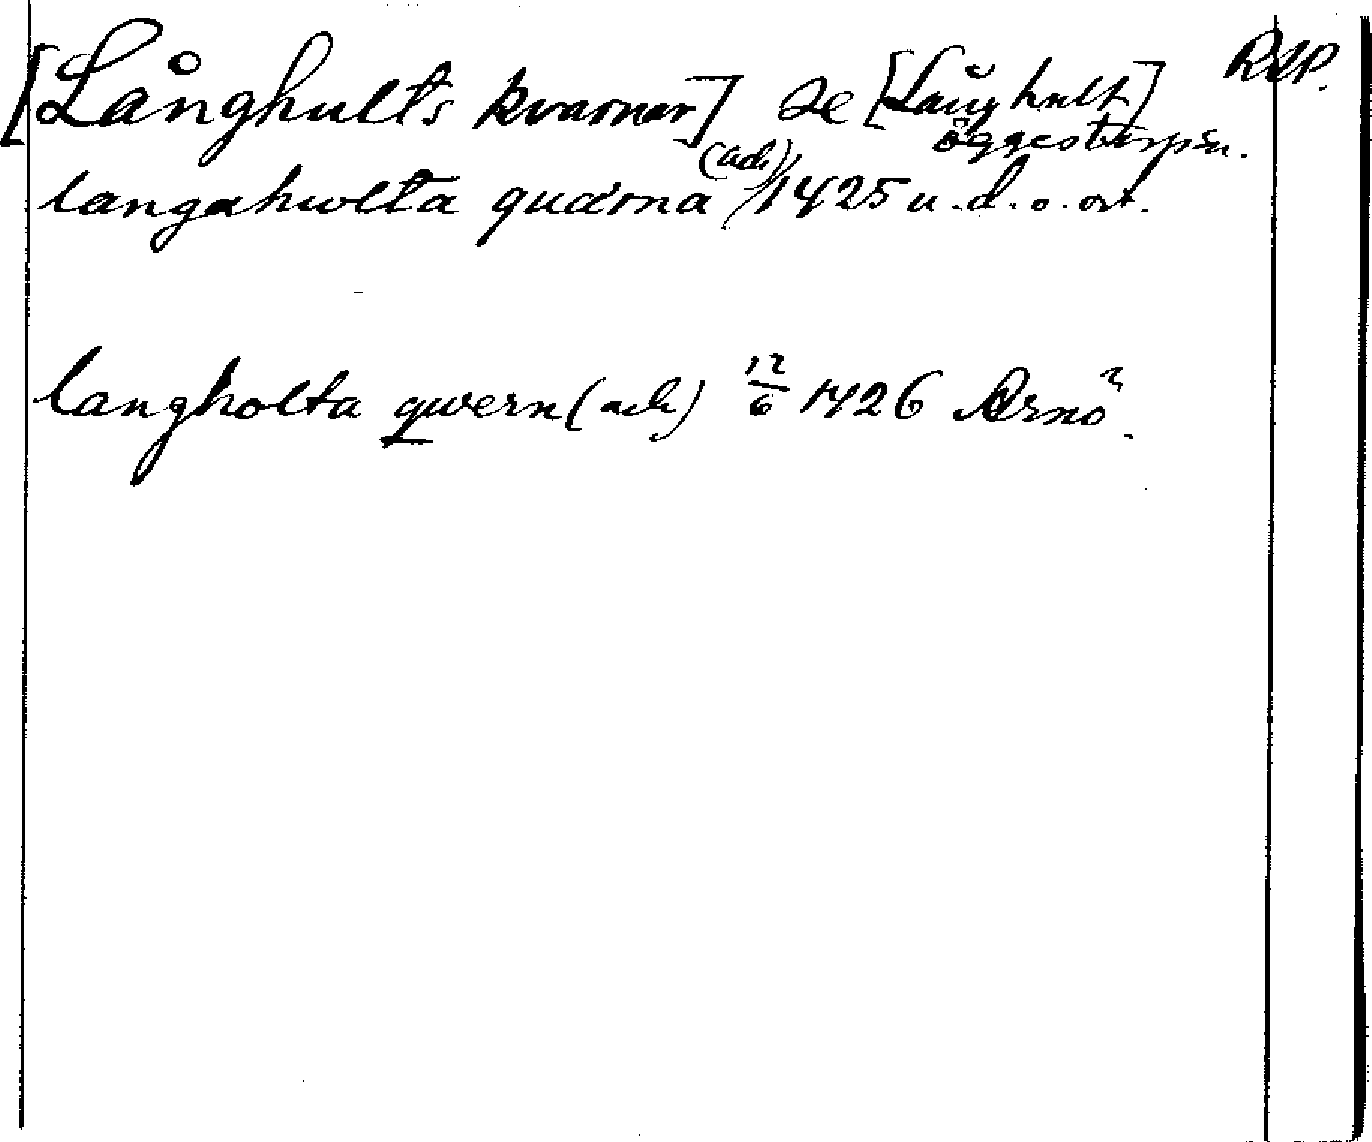 [Långhults kvarnar] se [Långhult] RAP.
Öggestorps sn.
langahwlta quærna (ad) 1425 u.d.o. ort.
langholta qwern (ack) 12/6 1426 Arnö